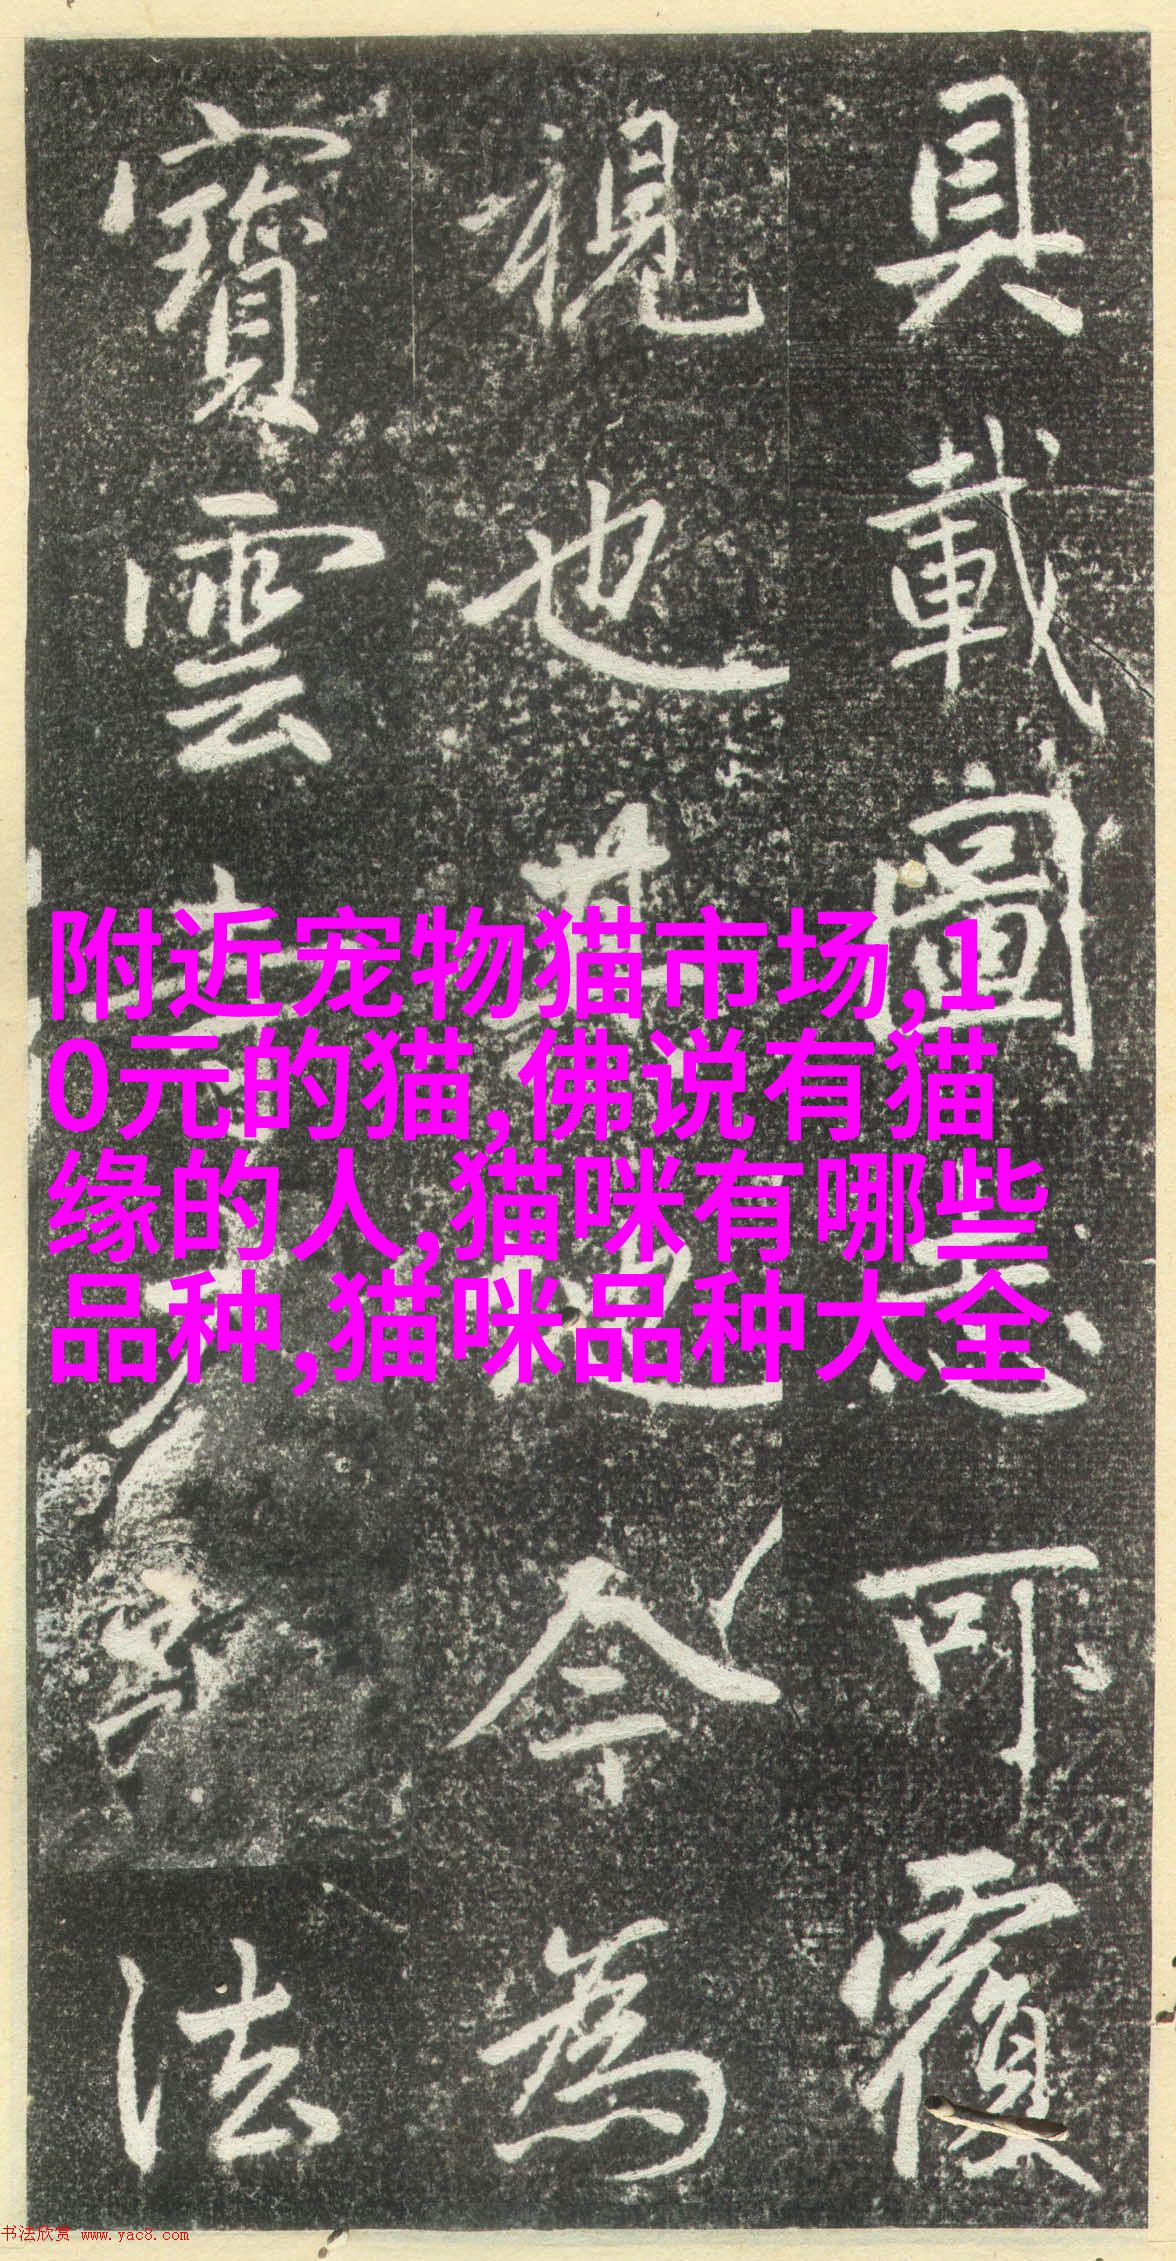 具載圖志可覆
視也其地今為
寶雲寺法
附近宠物猫市场,1
0元的猫,佛说有猫
缘的人,猫咪有哪些
品种,猫咪品种大全
书法欣赏 www.yac8.com